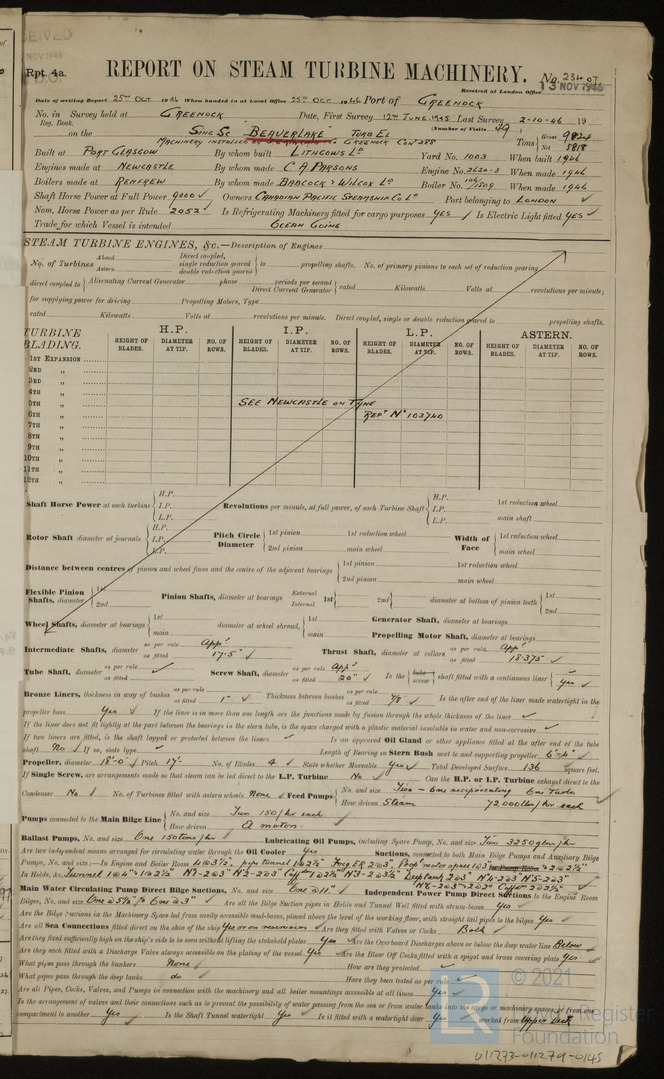 Rpt. 4a.
REPORT ON STEAM TURBINE MACHINERY. No. 23407
13 NOV 1946
Received at London Office
Date of writing Report 25th OCT 1946 When handed in at Local Office 25th OCT 1946 Port of GREENOCK
No. in Survey held at GREENOCK Date, First Survey 12TH JUNE 1945 Last Survey 2-10-46 19
Reg. Book. (Number of Visits 49)
on the SING SC BEAVERLAKE TURB EL Tons Gross 9824 Net 5818
MACHINERY INSTALLED GREENOCK
Built at PORT GLASGOW By whom built LITHGOWS Ld Yard No. 1003 When built 1946
Engines made at NEWCASTLE By whom made C A PARSONS Engine No. 2620-3 When made 1946
Boilers made at RENFREW By whom made BABCOCK & WILCOX Ld Boiler No. When made 1946
Shaft Horse Power at Full Power 9000 ✓ Owners CANADIAN PACIFIC STEAMSHIP Co Ld Port belonging to LONDON
Nom. Horse Power as per Rule 2052 ✓ Is Refrigerating Machinery fitted for cargo purposes YES ✓ Is Electric Light fitted YES ✓
Trade for which Vessel is intended OCEAN GOING
STEAM TURBINE ENGINES, &c.—Description of Engines
No. of Turbines Ahead Astern Direct coupled, single reduction geared double reduction geared to propelling shafts. No. of primary pinions to each set of reduction gearing
direct coupled to Alternating Current Generator phase periods per second Direct Current Generator rated Kilowatts Volts at revolutions per minute;
for supplying power for driving Propelling Motors, Type
rated Kilowatts Volts at revolutions per minute. Direct coupled, single or double reduction geared to propelling shafts.
TURBINE BLADING. H.P. I.P. L.P. ASTERN.
HEIGHT OF BLADES. DIAMETER AT TIP. NO. OF ROWS. HEIGHT OF BLADES. DIAMETER AT TIP. NO. OF ROWS. HEIGHT OF BLADES. DIAMETER AT TIP. NO. OF ROWS. HEIGHT OF BLADES. DIAMETER AT TIP. NO. OF ROWS.
1ST EXPANSION
2ND „
3RD „
4TH „
5TH „ SEE NEWCASTLE ON TYNE
6TH „ REPt No 103740
7TH „
8TH „
9TH „
10TH „
11TH „
12TH „
Shaft Horse Power at each turbine H.P. I.P. L.P. Revolutions per minute, at full power, of each Turbine Shaft H.P. I.P. L.P. 1st reduction wheel main shaft
Rotor Shaft diameter at journals H.P. I.P. L.P. Pitch Circle Diameter 1st pinion 2nd pinion 1st reduction wheel main wheel Width of Face 1st reduction wheel main wheel
Distance between centres of pinion and wheel faces and the centre of the adjacent bearings 1st pinion 2nd pinion 1st reduction wheel main wheel
Flexible Pinion Shafts, diameter 1st 2nd Pinion Shafts, diameter at bearings External Internal 1st 2nd diameter at bottom of pinion teeth 1st 2nd
Wheel Shafts, diameter at bearings 1st main diameter at wheel shroud, 1st main Generator Shaft, diameter at bearings
Propelling Motor Shaft, diameter at bearings
Intermediate Shafts, diameter as per rule Appd as fitted 17.5" ✓ Thrust Shaft, diameter at collars as per rule Appd as fitted 18.375" ✓
Tube Shaft, diameter as per rule as fitted ✓ Screw Shaft, diameter as per rule Appd as fitted 20" ✓ Is the tube screw shaft fitted with a continuous liner Yes ✓
Bronze Liners, thickness in way of bushes as per rule as fitted 1" ✓ Thickness between bushes as per rule as fitted 7/8 ✓ Is the after end of the liner made watertight in the
propeller boss Yes ✓ If the liner is in more than one length are the junctions made by fusion through the whole thickness of the liner ✓
If the liner does not fit tightly at the part between the bearings in the stern tube, is the space charged with a plastic material insoluble in water and non-corrosive ✓
If two liners are fitted, is the shaft lapped or protected between the liners ✓ Is an approved Oil Gland or other appliance fitted at the after end of the tube
shaft No ✓ If so, state type ✓ Length of Bearing in Stern Bush next to and supporting propeller 6'-4" ✓
Propeller, diameter 18'-0" ✓ Pitch 17'- No. of Blades 4 ✓ State whether Moveable Yes ✓ Total Developed Surface 136 square feet.
If Single Screw, are arrangements made so that steam can be led direct to the L.P. Turbine No Can the H.P. or I.P. Turbine exhaust direct to the
Condenser No ✓ No. of Turbines fitted with astern wheels None ✓ Feed Pumps No. and size Two - one reciprocating One Turbo
How driven Steam 72,000 lbs/hr each
Pumps connected to the Main Bilge Line No. and size Two 150/hr each ✓
How driven 2 motors
Ballast Pumps, No. and size One 150 tons/hr ✓ Lubricating Oil Pumps, including Spare Pump, No. and size Two 3250 glns/hr ✓
Are two independent means arranged for circulating water through the Oil Cooler Yes Suctions, connected to both Main Bilge Pumps and Auxiliary Bilge
Pumps, No. and size:—In Engine and Boiler Room
In Holds, &c.
Main Water Circulating Pump Direct Bilge Suctions, No. and size One @ 11" ✓ Independent Power Pump Direct Suctions to the Engine Room
Bilges, No. and size Are all the Bilge Suction pipes in Holds and Tunnel Well fitted with strum-boxes Yes ✓
Are the Bilge Suctions in the Machinery Space led from easily accessible mud-boxes, placed above the level of the working floor, with straight tail pipes to the bilges Yes ✓
Are all Sea Connections fitted direct on the skin of the ship Yes Are they fitted with Valves or Cocks Both ✓
Are they fixed sufficiently high on the ship's side to be seen without lifting the stokehold plates Yes ✓ Are the Overboard Discharges above or below the deep water line Below ✓
Are they each fitted with a Discharge Valve always accessible on the plating of the vessel Yes ✓ Are the Blow Off Cocks fitted with a spigot and brass covering plate Yes ✓
What pipes pass through the bunkers None ✓ How are they protected ✓
What pipes pass through the deep tanks do ✓ Have they been tested as per rule ✓
Are all Pipes, Cocks, Valves, and Pumps in connection with the machinery and all boiler mountings accessible at all times Yes ✓
In the arrangement of valves and their connections such as to prevent the possibility of water passing from the sea or from water tanks into the cargo or machinery spaces, or from one
compartment to another Yes ✓ Is the Shaft Tunnel watertight Yes ✓ Is it fitted with a watertight door Yes ✓ worked from Upper Deck
© 2021
Lloyd's Register
Foundation
011273-011279-0145